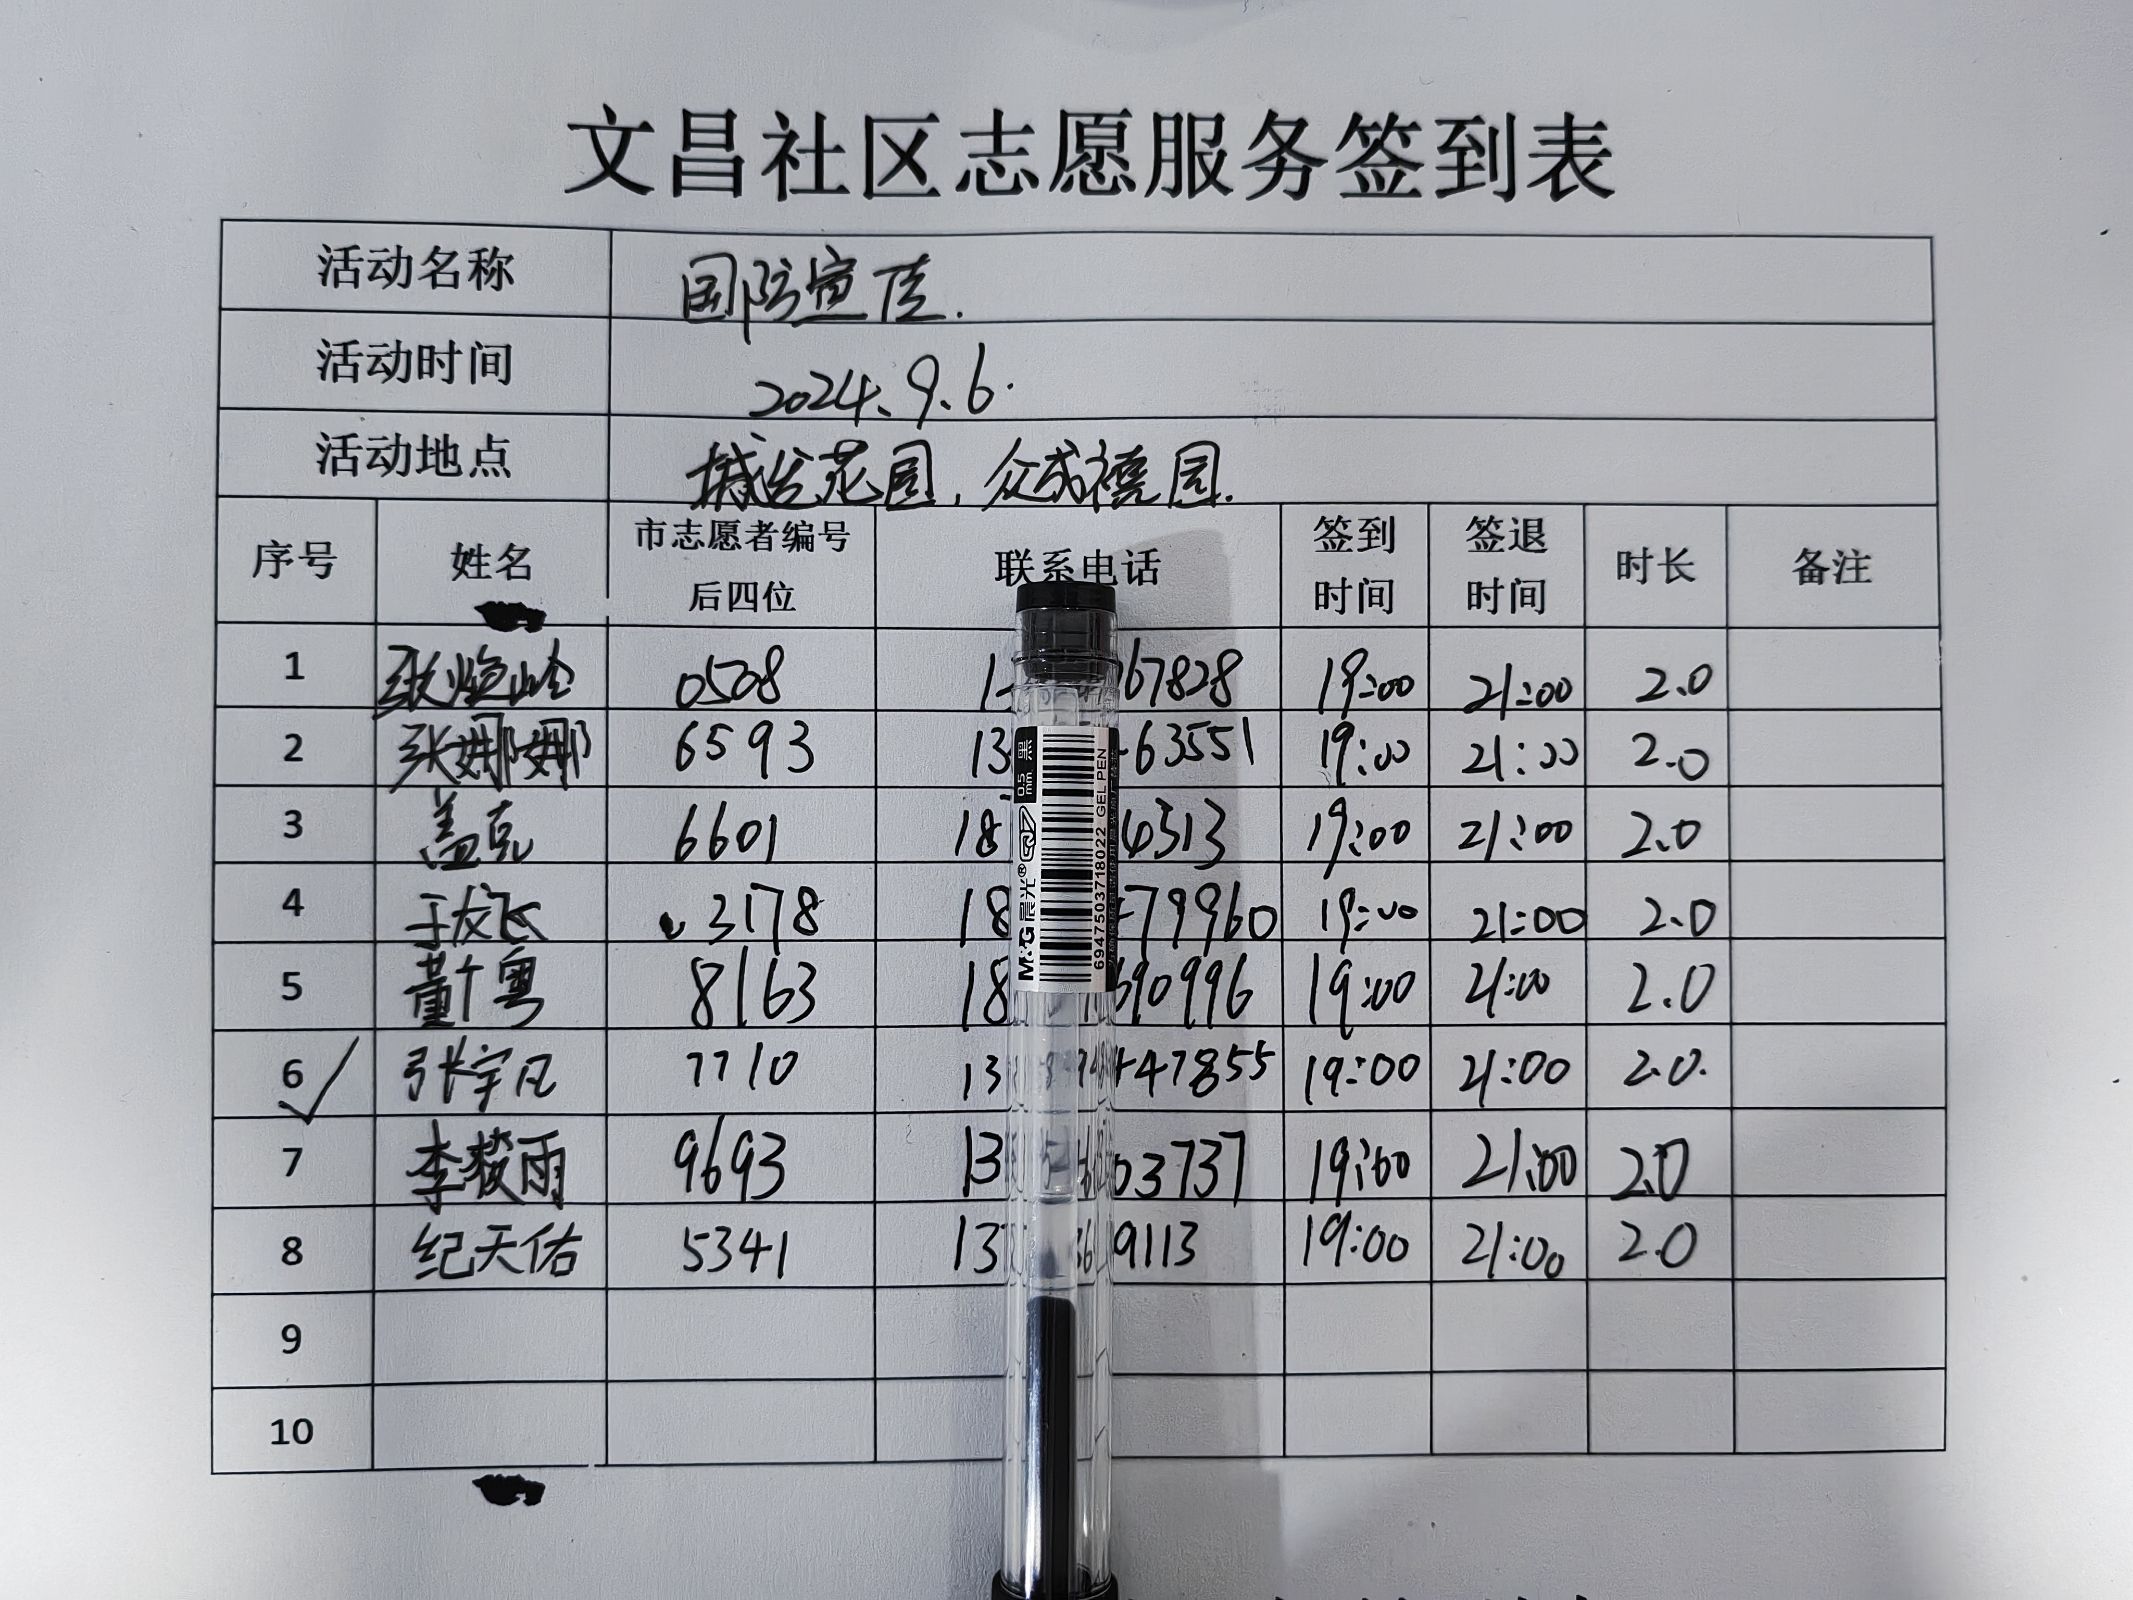 文昌社区志愿服务签到表
活动名称 国防宣传.
活动时间 2024.9.6.
活动地点 城发花园，众成禧园.
序号 姓名 市志愿者编号后四位 联系电话 签到时间 签退时间 时长 备注
1 0508 67828 19:00 21:00 2.0
2 张娜娜 6593 13 63551 19:00 21:00 2.0
3 盖克 6601 18 4313 19:00 21:00 2.0
4 于友飞 3178 18 79960 19:00 21:00 2.0
5 董千粤 8163 18 690996 19:00 21:00 2.0
6 张宇凡 7710 13 47855 19:00 21:00 2.0.
7 李 雨 9693 13 03737 19:00 21:00 2.0
8 纪天佑 5341 13 9113 19:00 21:00 2.0
9
10
0.5 mm 黑
M&G 晨光® GEL PEN
6947503718022